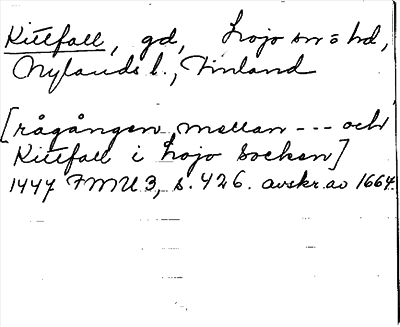 Kittfall, gd, Lojo sn o hd,
Nylands l., Finland
[rågången mellan --- och
Kittfall i Lojo Socken]
1447 FMU 3, s. 426. avskr. av 1664.